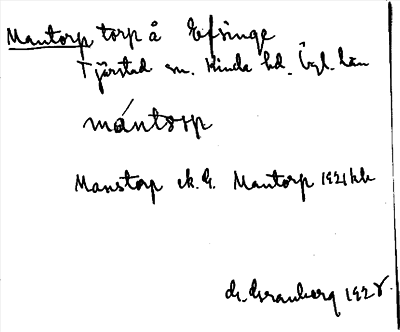 Mantorp torp å Efsinge
Tjärstad sn. Kinda hd. Ögl. län
mántorp
Manstorp ek. G. Mantorp 1921 hk
G. Granberg 1928.